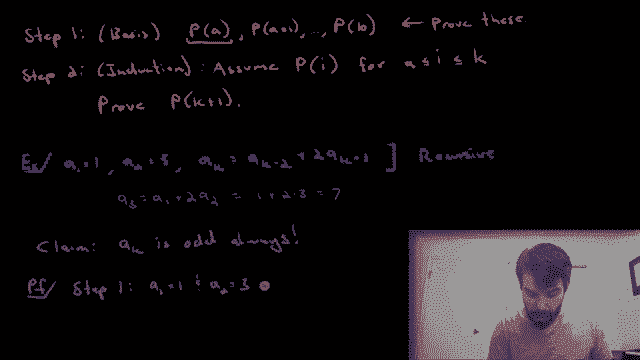 Step 1: (Basis) P(a), P(a+1), ..., P(b) ← Prove these
Step 2: (Induction): Assume P(i) for a ≤ i ≤ k
Prove P(k+1).
Ex/ a₁=1, a₂=3, aₖ = aₖ₋₂ + 2aₖ₋₁ ] Recursive
a₃ = a₁ + 2a₂ = 1 + 2·3 = 7
Claim: aₖ is odd always!
Pf/ Step 1: a₁=1 & a₂=3